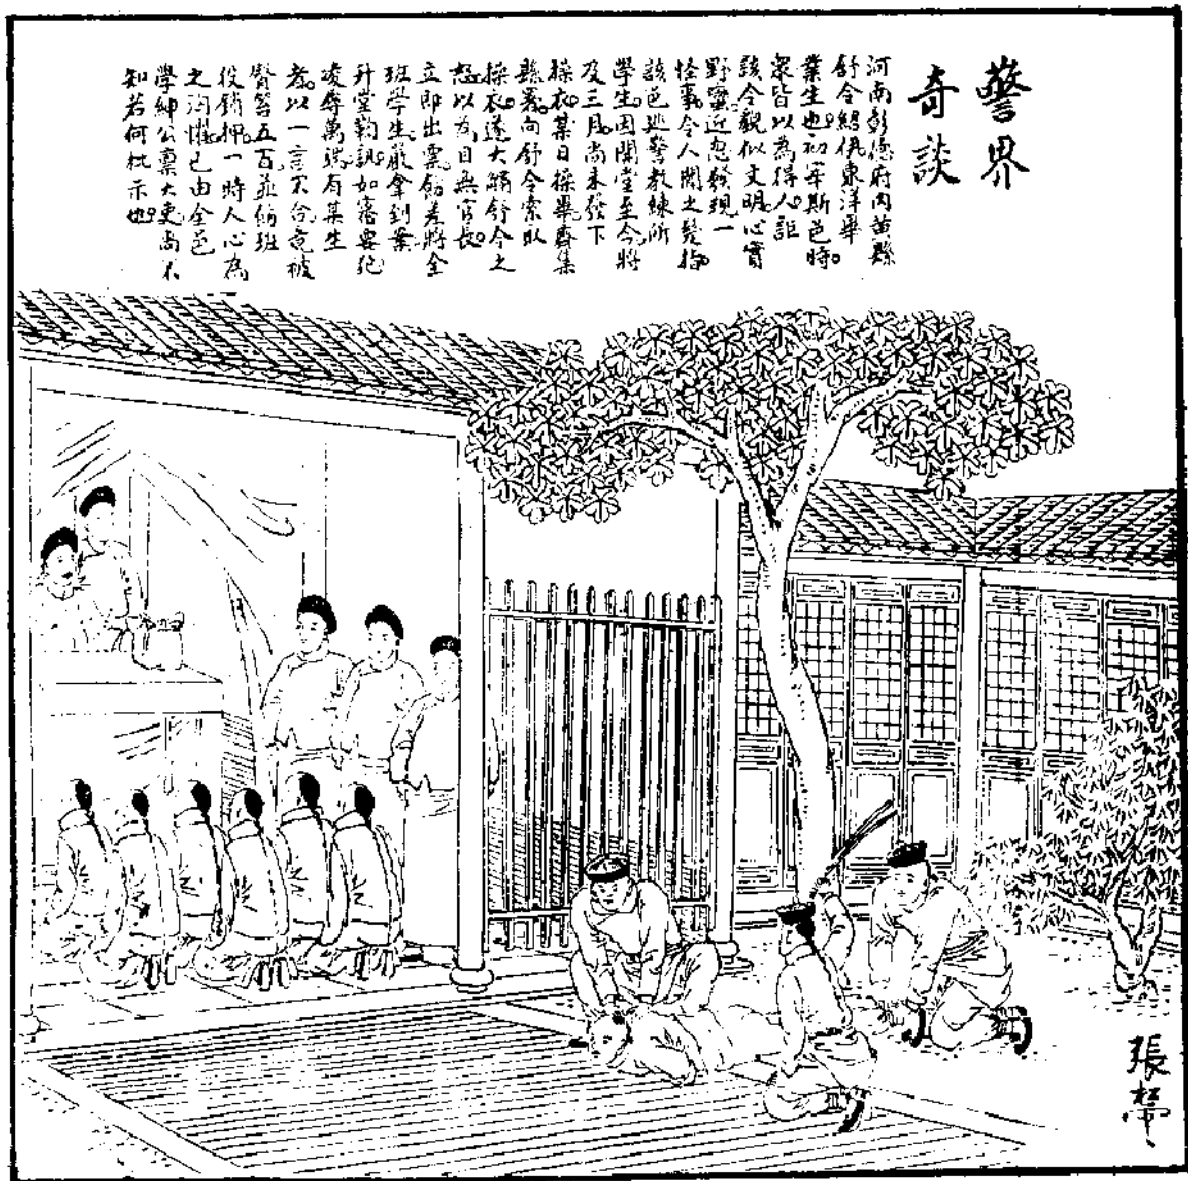 警界
奇談
河南彰德府內黃縣
舒令紹俱東洋畢
業生也初宰斯邑時
衆皆以為得人詎
該令貌似文明心實
野蠻近忽發現一
怪事令人聞之髮指
該邑巡警教練所
學生因開堂至今將
及三月尚未發下
操衣某日操畢齊集
縣署向舒令索取
操衣遂大觸舒令之
怒以為目無官長
立即出票飭差將全
班學生嚴拿到案
升堂鞫訊如審要犯
凌辱萬端有某生
者以一言不合竟被
臀笞五百並偹班
役鎖押一時人心為
之洶懼已由全邑
學紳公稟大吏尚不
知若何批示也
張